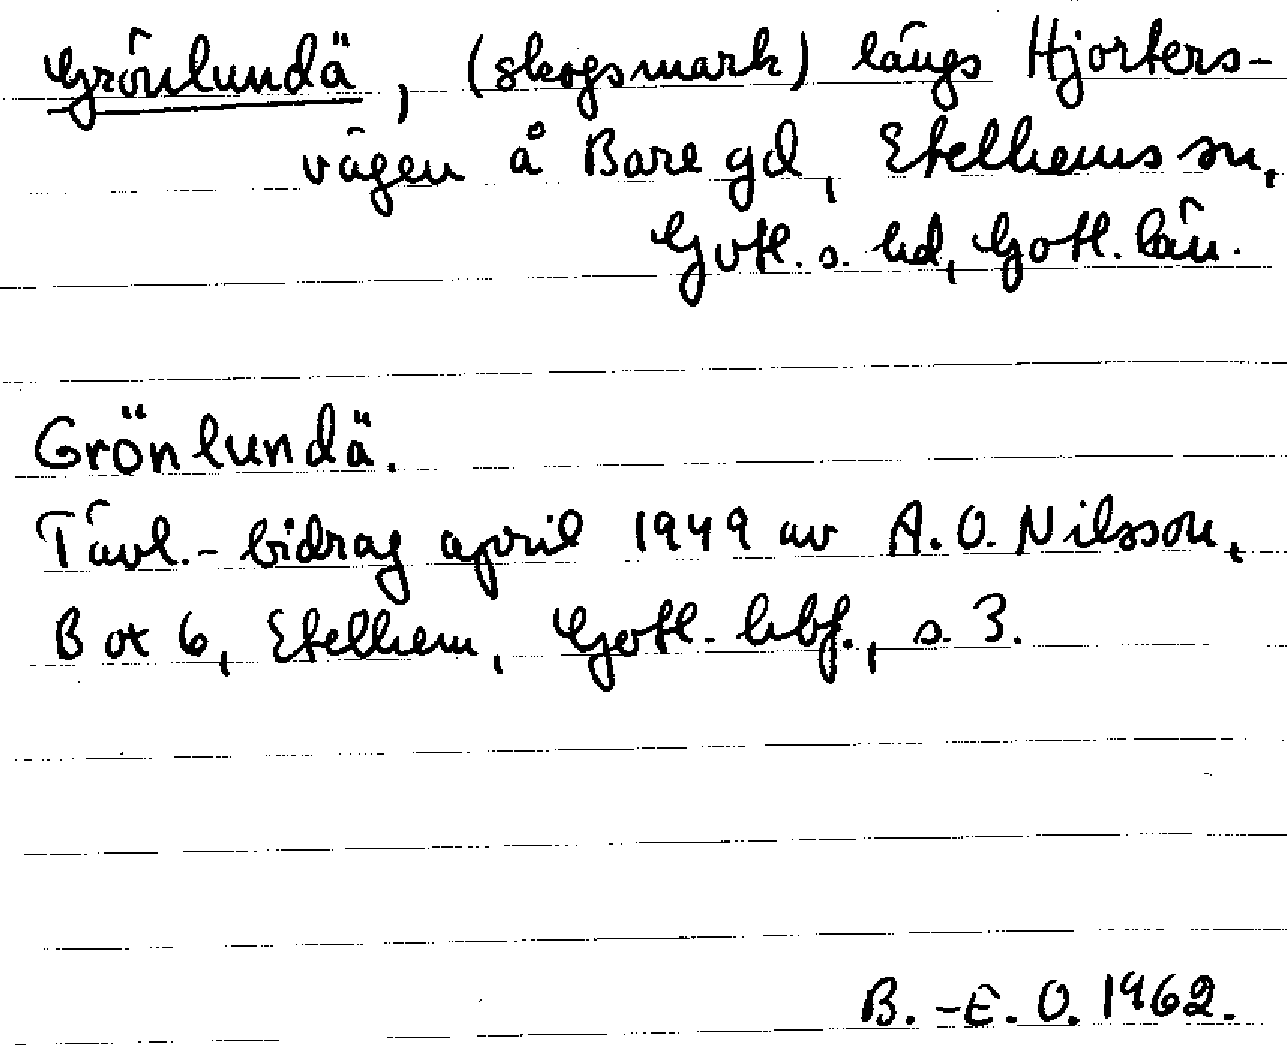 Grönlundä, (skogsmark) längs Hjorters-
vägen å Bare gd, Etelhems sn,
Gotl. s. hd, Gotl. län.
Grönlundä.
Tävl.-bidrag april 1949 av A. O. Nilsson,
Box 6, Etelhem, Gotl. hbf., s. 3.
B.-E. O. 1962.